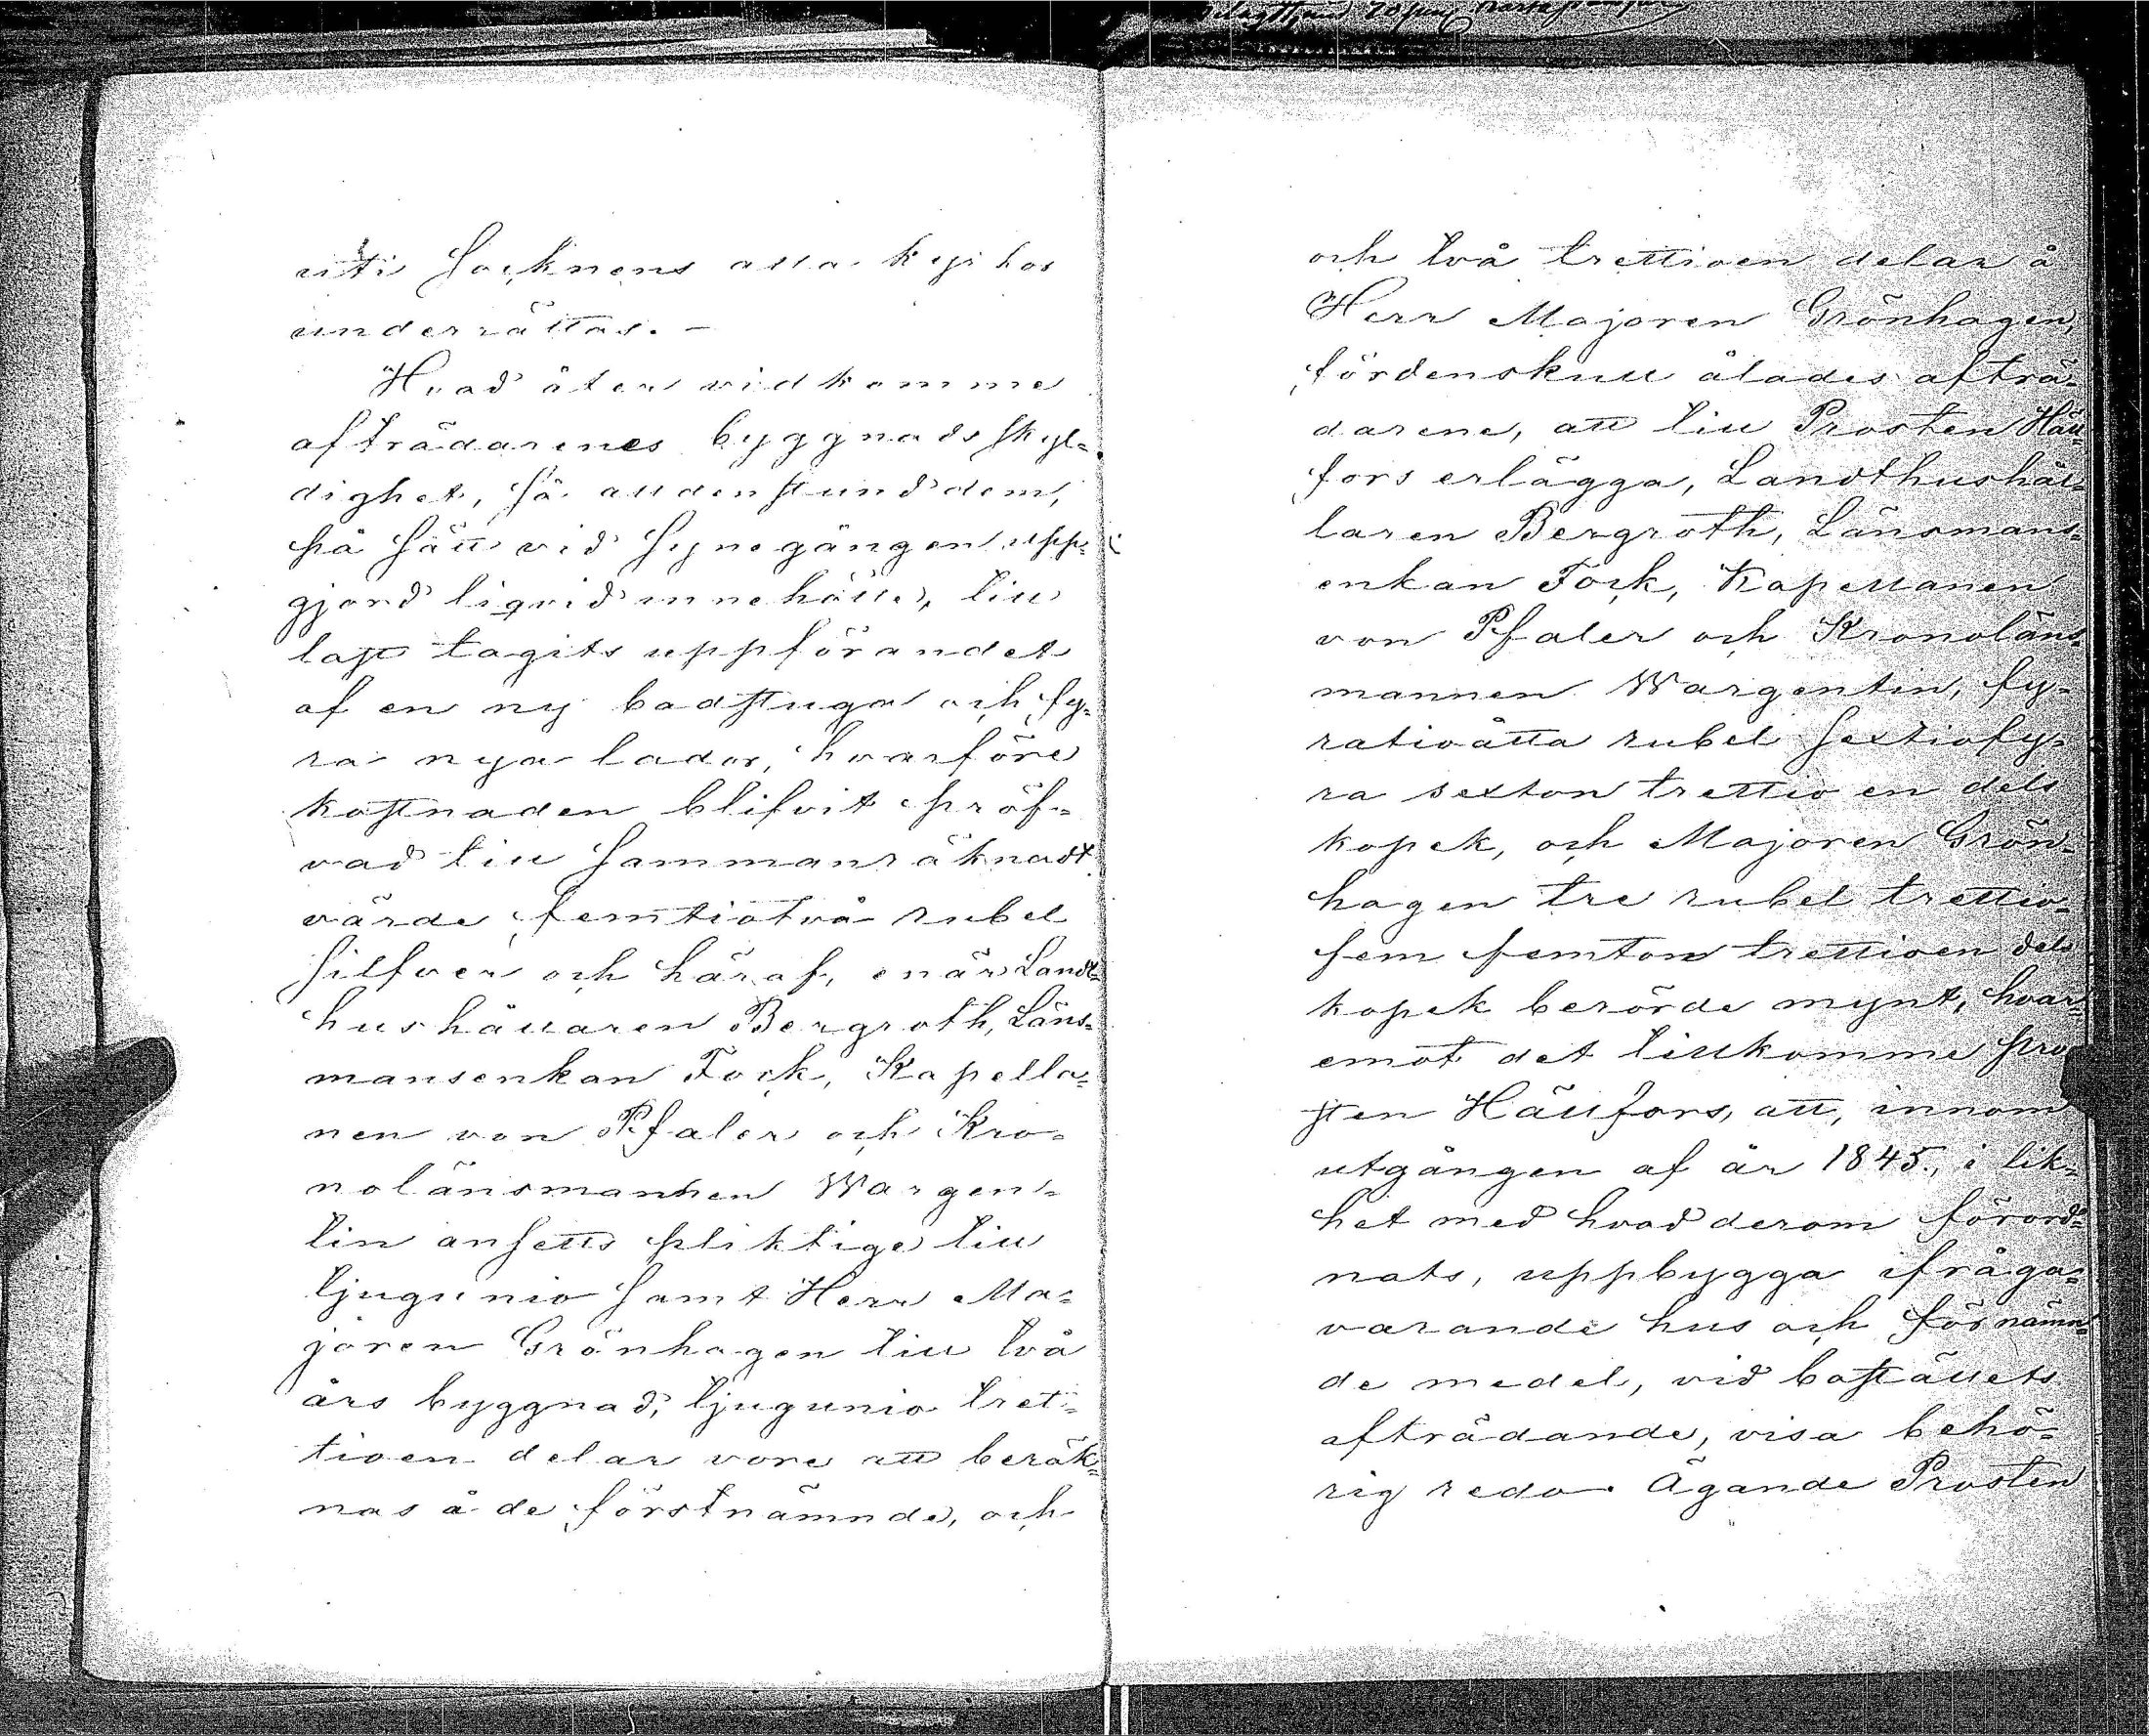 uti Socknens alla kyrkor
underrättas. –
Hvad åter vidkomme
afträdarenes byggnadsskyl=
dighet, så alldenstund dem,
på sätt vid synegången upp=
gjord liqvid innehölle, till
last tagits uppförandet
af en ny badstuga och fy=
ra nya lador, hvarföre
kostnaden blifvit pröf=
vad till sammanräknadt
värde femtiotvå rubel
silfver och häraf, enär Landt=
hushållaren Bergroth, Läns=
mansenkan Fock, Kapella=
nen von Pfaler och Kro=
nolänsmannen Wargen=
tin ansetts pliktige till
tjugunio samt Herr Ma=
joren Grönhagen till två
års byggnad, tjugunio tret=
tioen delar vore att beräk=
nas å de förstnämnde, och
och två trettioen delar å
Herr Majoren Grönhagen,
fördenskull ålades afträ=
darene, att till Prosten Häll=
fors erlägga, Landthushål=
laren Bergroth, Länsmans=
enkan Fock, Kapellanen
von Pfaler och Kronoläns=
mannen Wargentin, fy=
ratioåtta rubel sextiofy=
ra sexton trettio en dels
kopek, och Majoren Grön=
hagen tre rubel trettio=
fem femton trettioen dels
kopek berörde mynt, hvar=
emot det tillkomme Pro
sten Hällfors, att, innom
utgången af år 1845., i lik=
het med hvad derom förord=
nats, uppbygga ifråga=
varande hus och förnämn=
de medel, vid boställets
afträdande, visa behö=
rig redo. Ägande Prosten